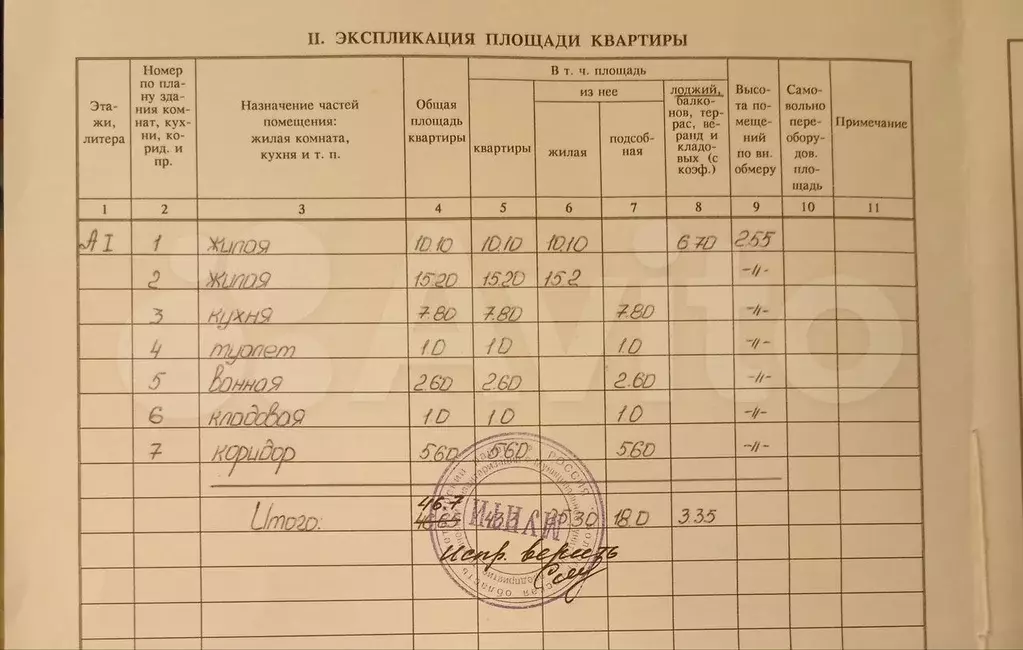 II. ЭКСПЛИКАЦИЯ ПЛОЩАДИ КВАРТИРЫ
Эта-
жи,
литера
Номер
по пла-
ну зда-
ния ком-
нат, кух-
ни, ко-
рид. и
пр.
Назначение частей
помещения:
жилая комната,
кухня и т. п.
Общая
площадь
квартиры
В т. ч. площадь
квартиры
из нее
жилая
подсоб-
ная
лоджий,
балко-
нов, тер-
рас, ве-
ранд и
кладо-
вых (с
коэф.)
Высо-
та по-
меще-
ний
по вн.
обмеру
Само-
вольно
пере-
обору-
дов.
пло-
щадь
Примечание
1 2 3 4 5 6 7 8 9 10 11
АI 1 жилая 10.10 10.10 10.10 6.70 2.55
2 жилая 15.20 15.20 15.2 -//-
3 кухня 7.80 7.80 7.80 -//-
4 туалет 1.0 1.0 1.0 -//-
5 ванная 2.60 2.60 2.60 -//-
6 кладовая 1.0 1.0 1.0 -//-
7 коридор 5.60 5.60 5.60 -//-
46.7
Итого: 46.65 43.3 25.30 18.0 3.35
Испр. верить
РОССИЯ
область
Avito